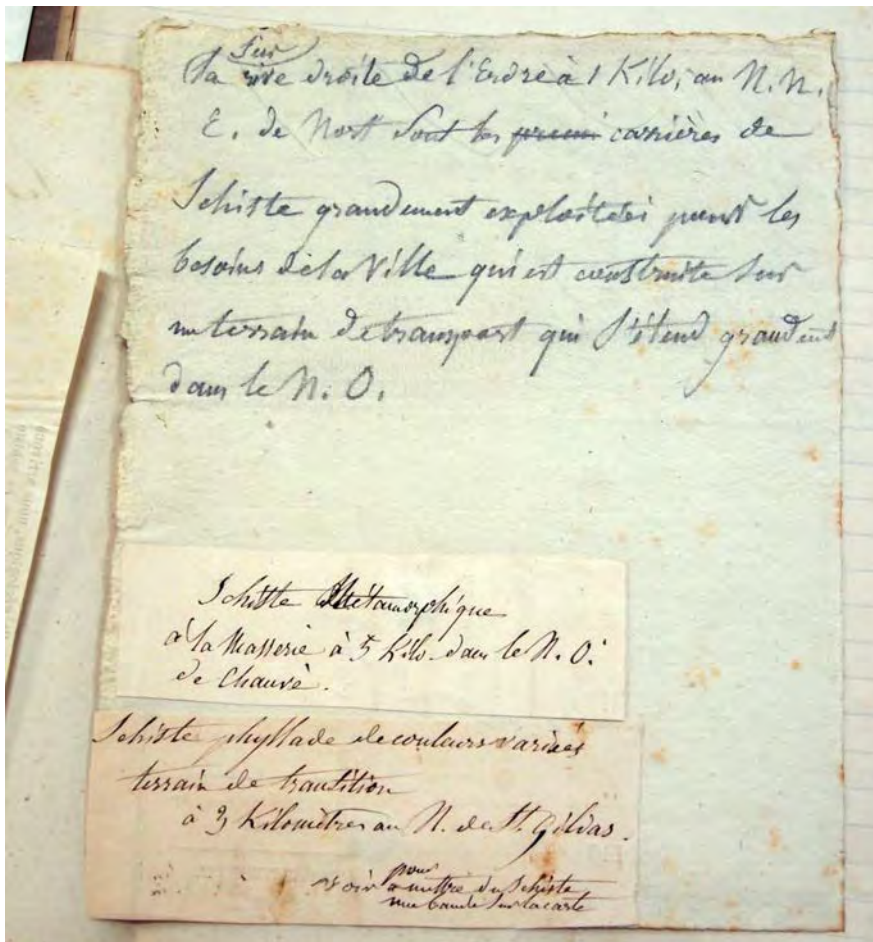 Sur
la rive droite de l'Erdre à 1 Kilo, au N. N.
E. de Nort sont les premi carrières de
Schiste grandement exploitées pour les
besoins de la Ville qui est construite sur
un terrain de transport qui s'étend grandent
dans le N. O.
Schiste Métamorphique
à la Masserie à 5 Kilo. dans le N. O.
de Chauvé.
Schiste phyllade de couleurs variées
terrain de transition
à 3 Kilomètres au N. de St. Gildas.
pour
voir à mettre du Schiste
une bande sur la carte